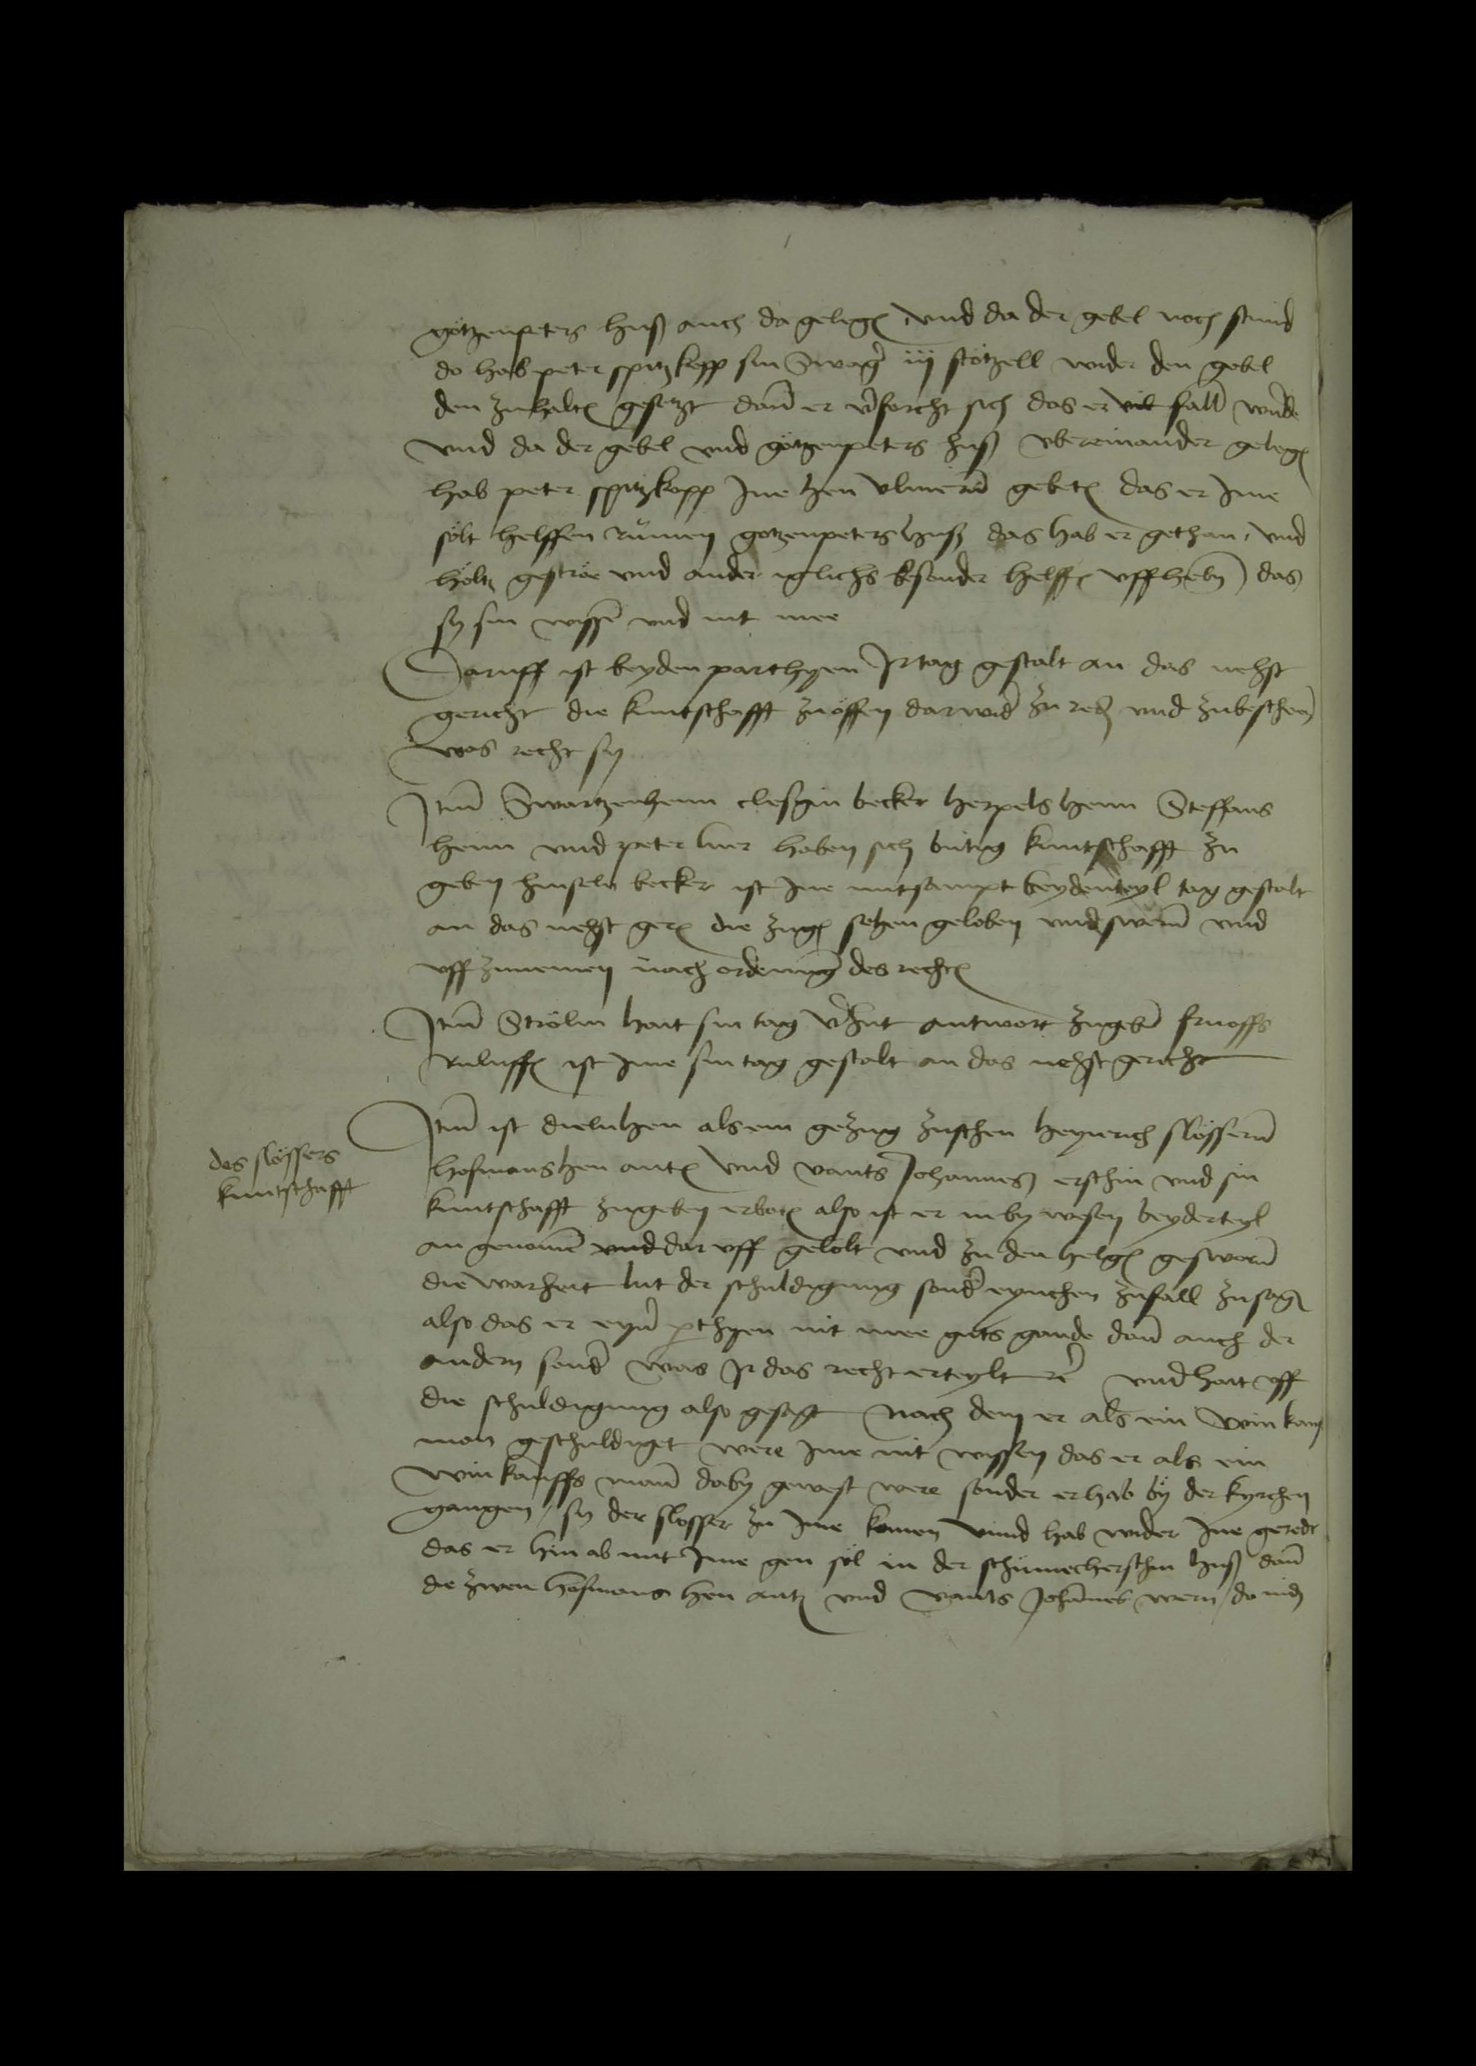 götzenpeters huß auch da gelegen vnd da der gebel noch stund
do hab peter spitzkopp sin Swager iij stötzell wider den gebel
den zuhalten gesetzt dann er verforcht sich das er vil fallen würde
vnd da der gebel vnd götzenpeters huß vbereinander gelegen
hab peter spitzkopp Ine hen vlmern gebeten das er Ime
sölt helffen rümen gotzenpeters huß das hab er gethan, vnd
höltz geströe vnd ander iglichs besonder helffen vffheben das
sy sin wissen vnd nit mee
Daruff ist beyden parthyen Ir tag gestalt an das nehst
gericht die kuntschafft zu öffen darwider zu reden vnd zubescheen
was recht sy
Item Swartzenhenn clesgin becker herpels henn Steffans
henn vnd peter lwer haben sich butig kuntschafft zu
geben hinseln becker ist Ine mitsampt beydenteyl tag gestalt
an das nehst gericht die zugen setzen geloben vnd swern vnd
vff zunemen nach ordenung des rechten
Item Ströhn hait sin tag verhut antwort zugeben fruoffs
ruluffen ist Ime sin tag gestalt an das nehst gericht
des slössers
kuntschafft
Item ist dieluhen als ein gezug zuschen heynrich slössern
hofmanshen anten vnd vants Johannes erschin vnd sin
kuntschafft zugeben erboten also ist er in by wesen beyderteyl
an genomen vnd dar vff gelobt vnd zu den helgen gesworn
die warheit lut der schuldigung sonder eynichen zufall zusagen
also das er eyner parthyen nit mee guts gonde dann auch der
andern sonder was Ir das recht erteylt etc vnd hait vff
die schuldigung also gesagt Nach dem er als ein Winkauffs
man geschuldiget were Ime nit wissen das er als ein
winkauffs mann daby gewest were sonder er hab by der kyrchen
gangen, sy der slosser zu Ime komen vnnd hab wider Ine geredt
das er hin ab mit Ime gen söl in der schumecherschin huß dann
die zwene hofmans hen antz vnd vants Johannes wern do nid